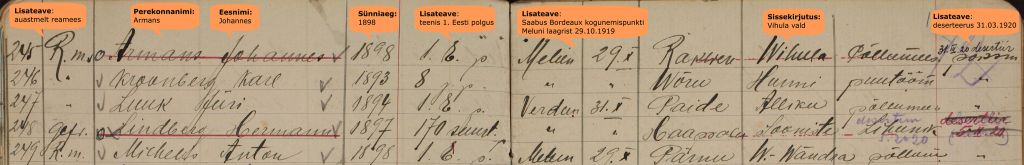 Lisateave:
auastmelt reamees
Perekonnanimi:
Armans
Eesnimi:
Johannes
Sünniaeg:
1898
Lisateave:
teenis 1. Eesti polgus
Lisateave:
Saabus Bordeaux kogunemispunkti
Meluni laagrist 29.10.1919
Sissekirjutus:
Vihula vald
Lisateave:
deserteerus 31.03.1920
245 R.m. Armans Johannes 1898 1. E. p. Melun 29.X Rakvere Wihula Põllumees
246 " Kroonberg Karl 1893 8 " " " Wõru
247 " Luuk Jüri 1894 1. E. p. Verdun 31.X Paide Alliku põllumees
248 gefr. Lindberg Hermann 1897 170 " " Haapsalu
249 R.m. Michels Anton 1898 1. E. p. Melun 29.X Pärnu W-Wändra põllum